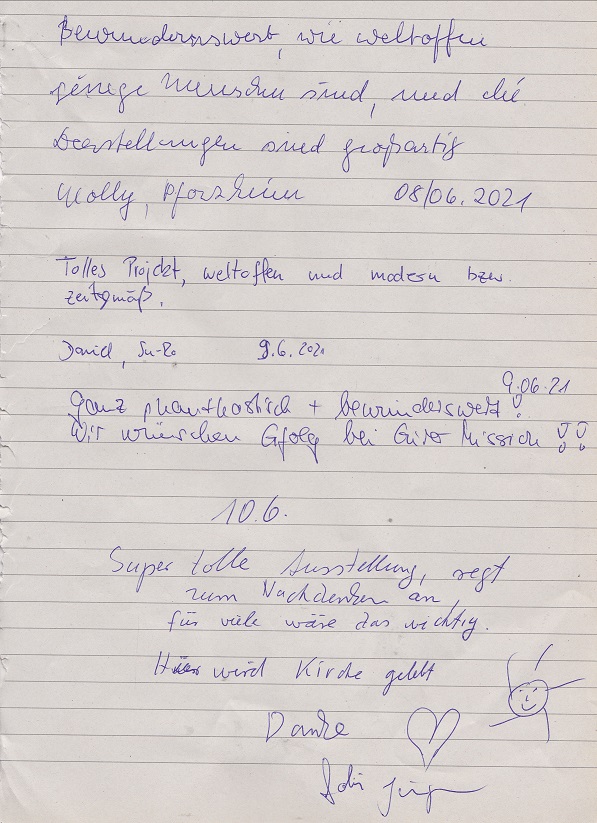 Bewundernswert, wie weltoffen
Menschen sind, und die
Darstellungen sind großartig
Molly, Pforzheim 08/06.2021
Tolles Projekt, weltoffen und modern bzw.
zeitgmäß.
David, Su-Ro 9.6.2021
9.06.21
Ganz phanthastisch + bewunderswert!
Wir wünschen Erfolg bei Eurer Mission !!
10.6.
Super tolle Ausstellung, regt
zum Nachdenken an,
für viele wäre das wichtig.
Hier wird Kirche gelebt
Danke